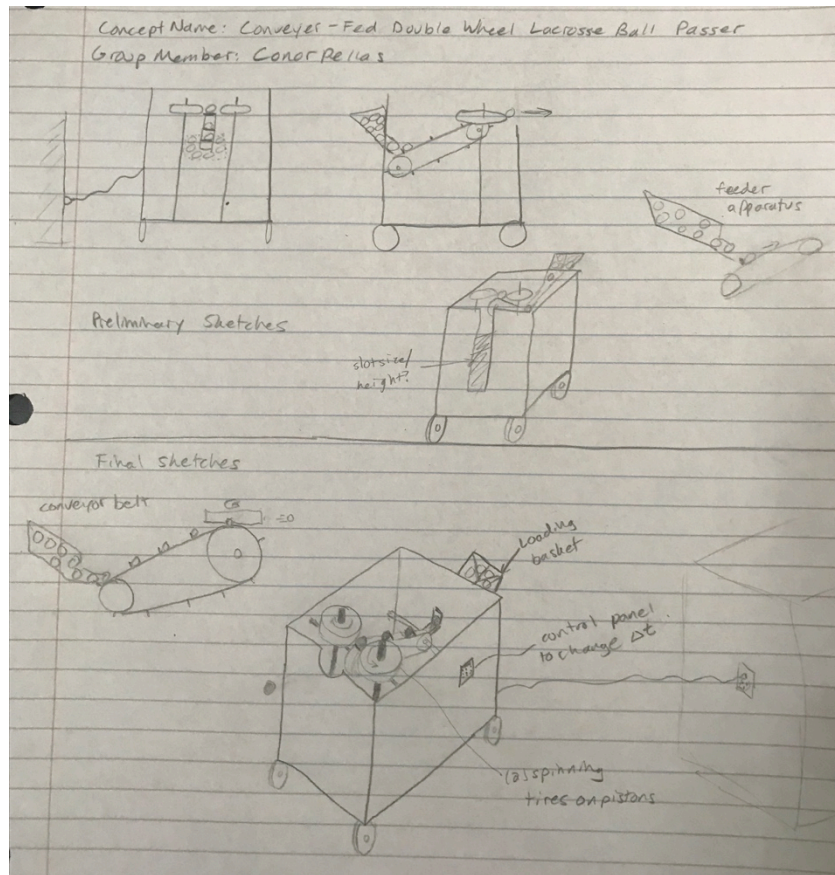 Concept Name: Conveyer-Fed Double Wheel Lacrosse Ball Passer
Group Member: Conor Pellas
feeder
apparatus
Preliminary Sketches
slot size/
height?
Final Sketches
conveyor belt
Loading
basket
control panel
to change Δt.
(2) spinning
tires on pistons